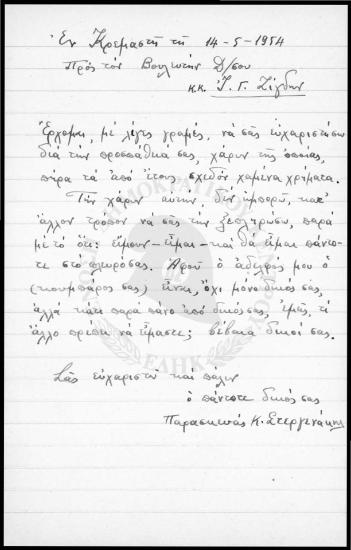 Ἐν Κρεμαστῇ τῇ 14-5-1954
Πρὸς τὸν Βουλευτὴν Δ/σου
κ.κ. Ἰ. Γ. Ζίγδην
Ἔρχομαι, μὲ λίγες γραμές, νὰ σᾶς εὐχαριστήσω
διὰ τὴν προσπάθιά σας, χάριν τῆς ὁποίας,
πῆρα τὰ ἀπὸ ἔτους σχεδὸν χαμενα χρήματα.
Τὴν χάριν αὐτήν, δὲν ἠμπορῶ, κατ'
ἄλλον τρόπον νὰ σᾶς τὴν ξεπληρώσω, παρὰ
μὲ τὸ ὅτι: ἤμουν-εἶμαι-καὶ θὰ εἶμαι πάντο-
τε στὸ πλευρόσας. Ἀφοῦ ὁ ἀδελφός μου ὁ
(κουμπάρος σας) εἶναι, ὄχι μόνο δικός σας,
ἀλλὰ κάτι παρα πάνο ἀπὸ δικόςσας, ἐμεῖς, τί
ἄλλο πρέπει νὰ εἴμαστε; βέβαια δικοί σας.
Σᾶς εὐχαριστῶ καὶ πάλιν
ὁ πάντοτε δικός σας
Παρασκευᾶς Κ. Στεργενάκης
ΕΛΗΚ